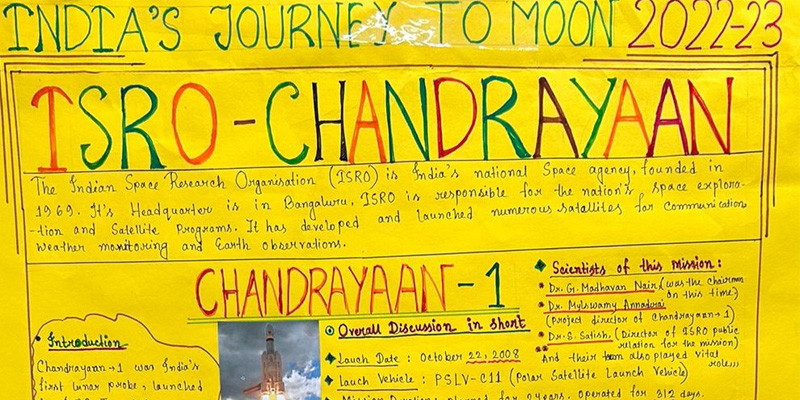 INDIA'S JOURNEY TO MOON 2022-23
ISRO-CHANDRAYAAN
The Indian Space Research Organisation (ISRO) is India's national Space agency, founded in
1969. It's Headquarter is in Bangaluru. ISRO is responsible for the nation's space explora-
-tion and Satellite Programs. It has developed and launched numerous satallites for communication
weather monitoring and Earth observations.
CHANDRAYAAN-1
Introduction
Chandrayaan-1 was India's
first lunar probe, launched
Overall Discussion in short
Lauch Date : October 22, 2008
Lauch Vehicle : PSLV-C11 (Polar Satellite Launch Vehicle)
Mission Duration planned for 2 years. Operated for 312 days.
Scientists of this Mission :
Dr. G. Madhavan Nair (was the chairman
on this time)
Dr. Mylswamy Annadurai
(project director of Chandrayaan-1)
Dr. S. Satish. (Director of ISRO public
relation for the mission)
And their team also played vital
role